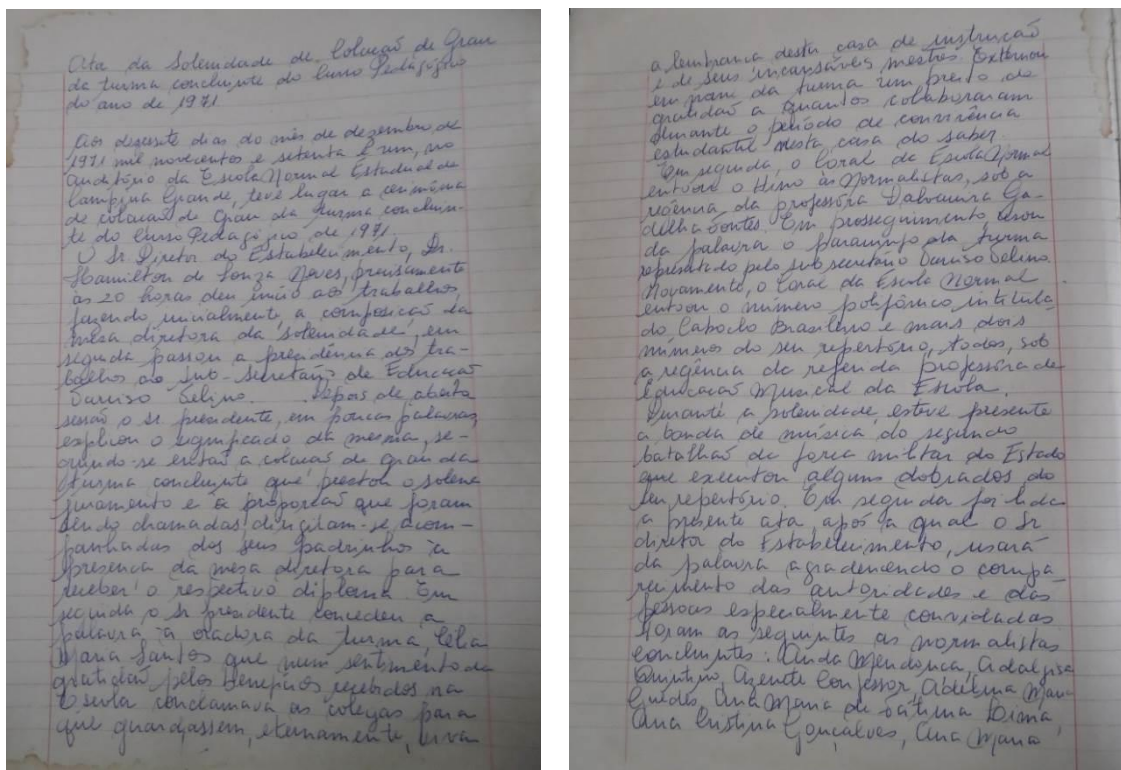 Ata da Solenidade de Colação de Grau
da turma concluinte do Curso Pedagógico
do ano de 1971.
Aos dezesete dias do mês de dezembro, de
1971 mil novecentos e setenta e um, no
auditório da Escola Normal Estadual de
Campina Grande, teve lugar a cerimônia
de colação de Grau da turma concluin-
te do Curso Pedagógico de 1971.
O Sr Diretor do Estabelecimento, Dr.
Hamilton de Souza Neves, precisamente
às 20 horas deu início aos trabalhos,
fazendo inicialmente, a composição da
mesa diretora da solenidade, em
seguida passou a presidência dos tra-
balhos ao Sub-Secretário de Educação
Depois de aberta
sessão o Sr. presidente, em poucas palavras,
explicou o significado da mesma, se-
guindo-se então a colação de grau da
turma concluinte que prestou o solene
juramento e a proporção que foram
sendo chamadas dirigiam-se, acom-
panhadas dos seus padrinhos à
presença da mesa diretora para
receber o respectivo diploma. Em
seguida o Sr presidente concedeu a
palavra à oradora da turma, Célia
Maria Santos que num sentimento de
gratidão pelos benefícios recebidos na
Escola conclamava as colegas para
que guardassem, eternamente, viva
a lembrança desta casa de instrução
e de seus incansáveis mestres. Externou
em nome da turma um preito de
gratidão a quantos colaboraram
durante o período de convivência
estudantil nesta casa do saber.
Em seguida, o Coral da Escola Normal
entoou o Hino às Normalistas, sob a
regência da professora Dalvanira Ga-
delha Fontes. Em prosseguimento usou
da palavra o paraninfo da turma
representado pelo subsecretário
Novamente, o Coral da Escola Normal
entoou o número polifônico intitula
do Caboclo Brasileiro e mais dois
números do seu repertório, todos, sob
a regência da referida professora de
Educação Musical da Escola.
Durante a solenidade, esteve presente
a banda de música do segundo
batalhão da força militar do Estado
que executou alguns dobrados do
seu repertório. Em seguida foi lida
a presente ata após a qual o Sr
diretor do Estabelecimento, usará
da palavra agradecendo o compa
recimento das autoridades e das
pessoas especialmente convidadas
Foram as seguintes as normalistas
concluintes: Mendonça, Adalgisa
Confessor, Maria
Guedes, Ana Maria de Fátima Lima,
Ana Cristina Gonçalves, Ana Maria